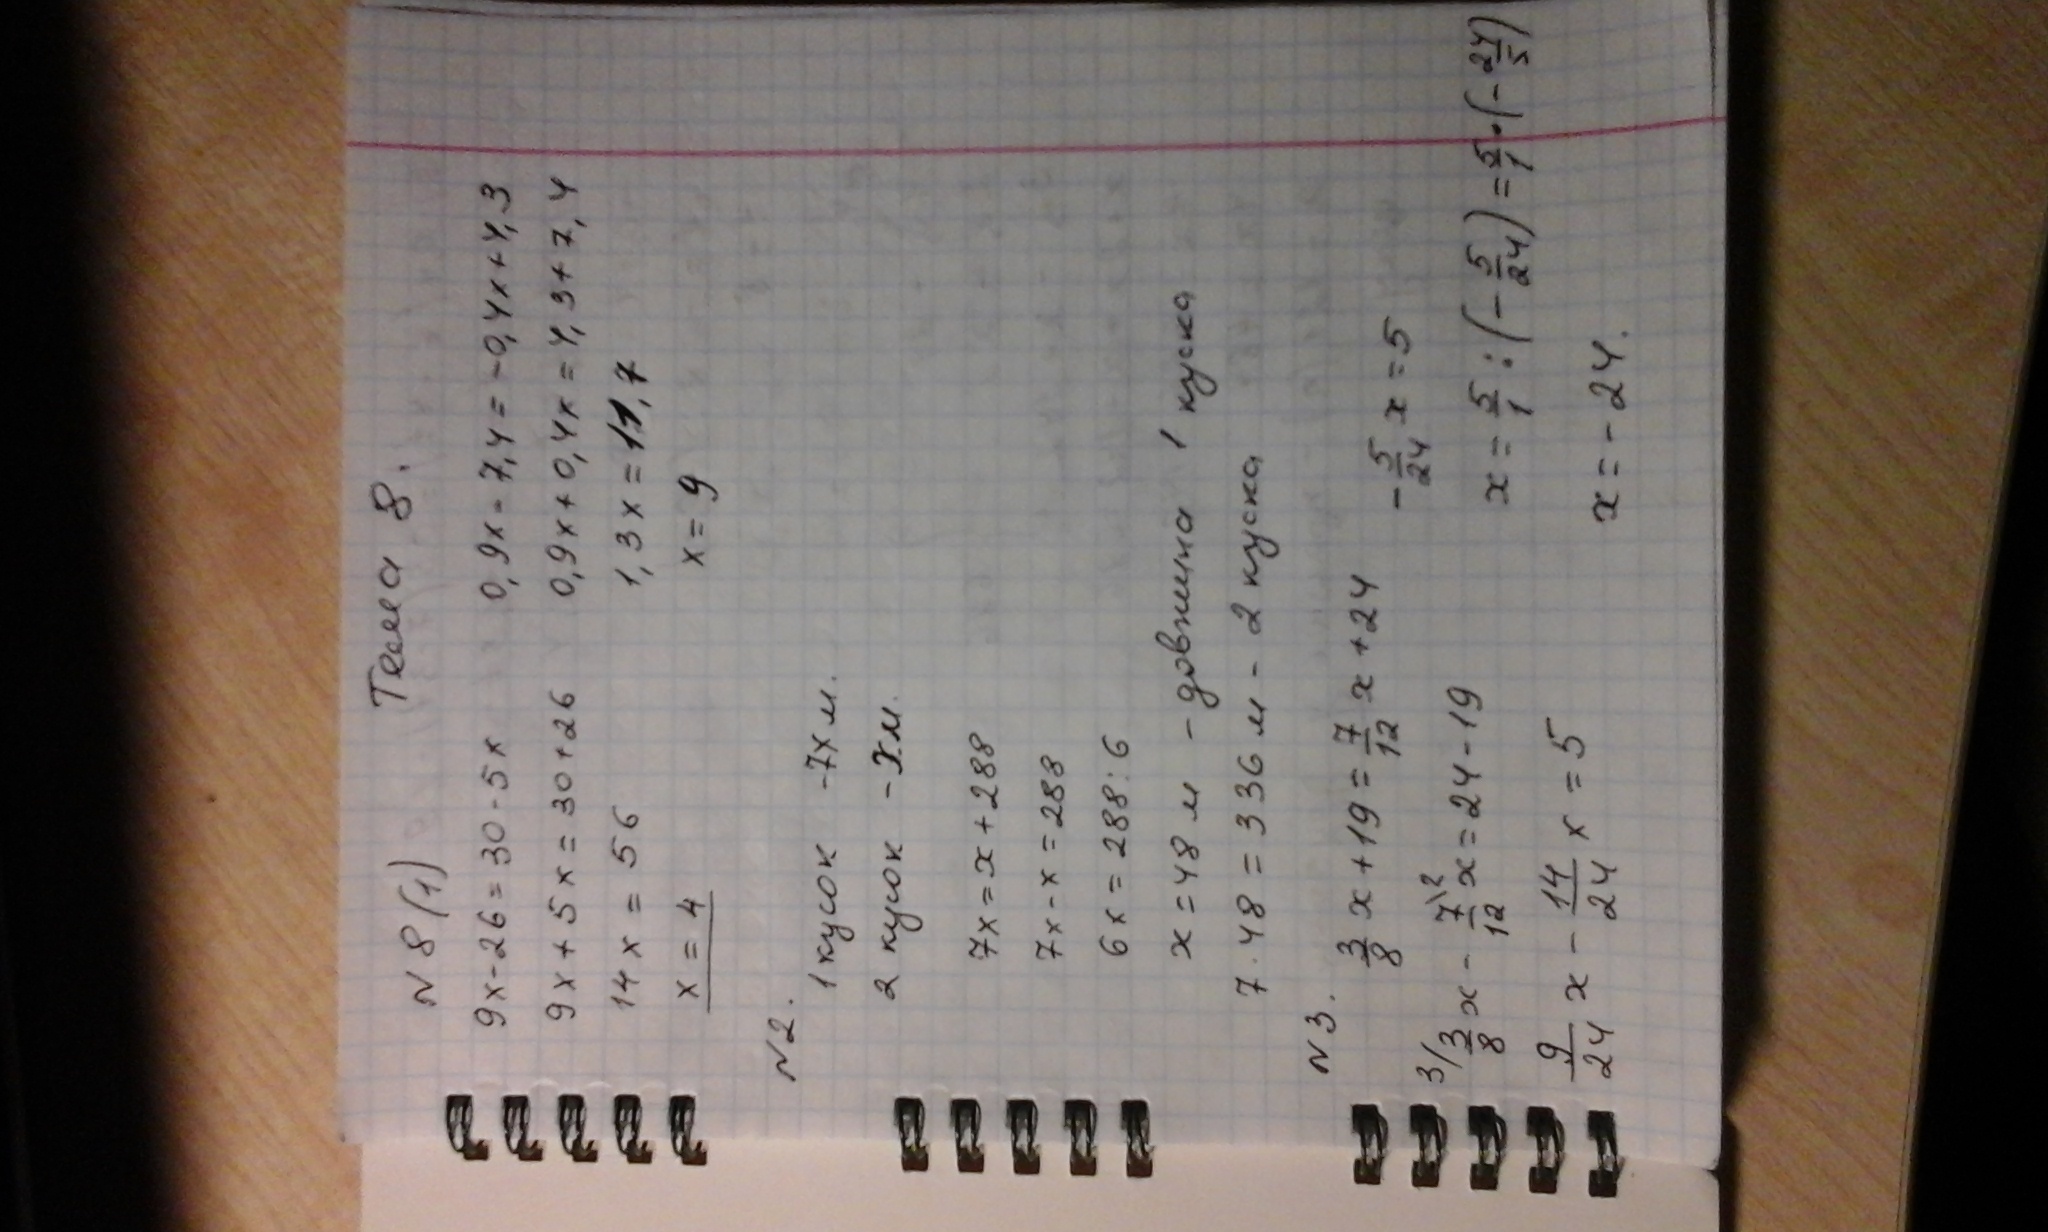 Тема 8.
N8(1)
9x-26=30-5x
9x+5x=30+26
14x=56
x=4
0,9x-7,4=-0,4x+4,3
0,9x+0,4x=4,3+7,4
1,3x=11,7
x=9
N2.
1 кусок -7x м.
2 кусок -x м.
7x=x+288
7x-x=288
6x=288:6
x=48 м - довжина 1 куска
7·48=336 м - 2 куска
N3.
3/8 x+19=7/12 x+24
3/ 3/8 x - 7/12 \2 x=24-19
9/24 x - 14/24 x=5
-5/24 x=5
x=5/1:(-5/24)=5/1·(-24/5)
x=-24.